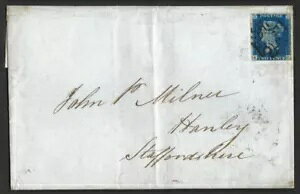 POSTAGE
John P. Milner
Hanley
Staffordshire